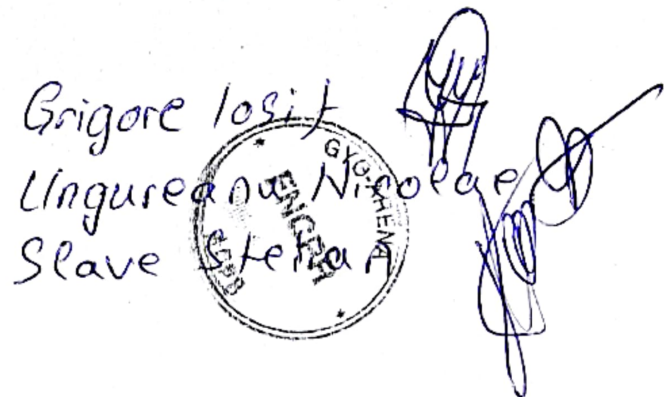 Grigore Iosif
Ungureanu Nicolae
Slave Stefan
ENIGMA